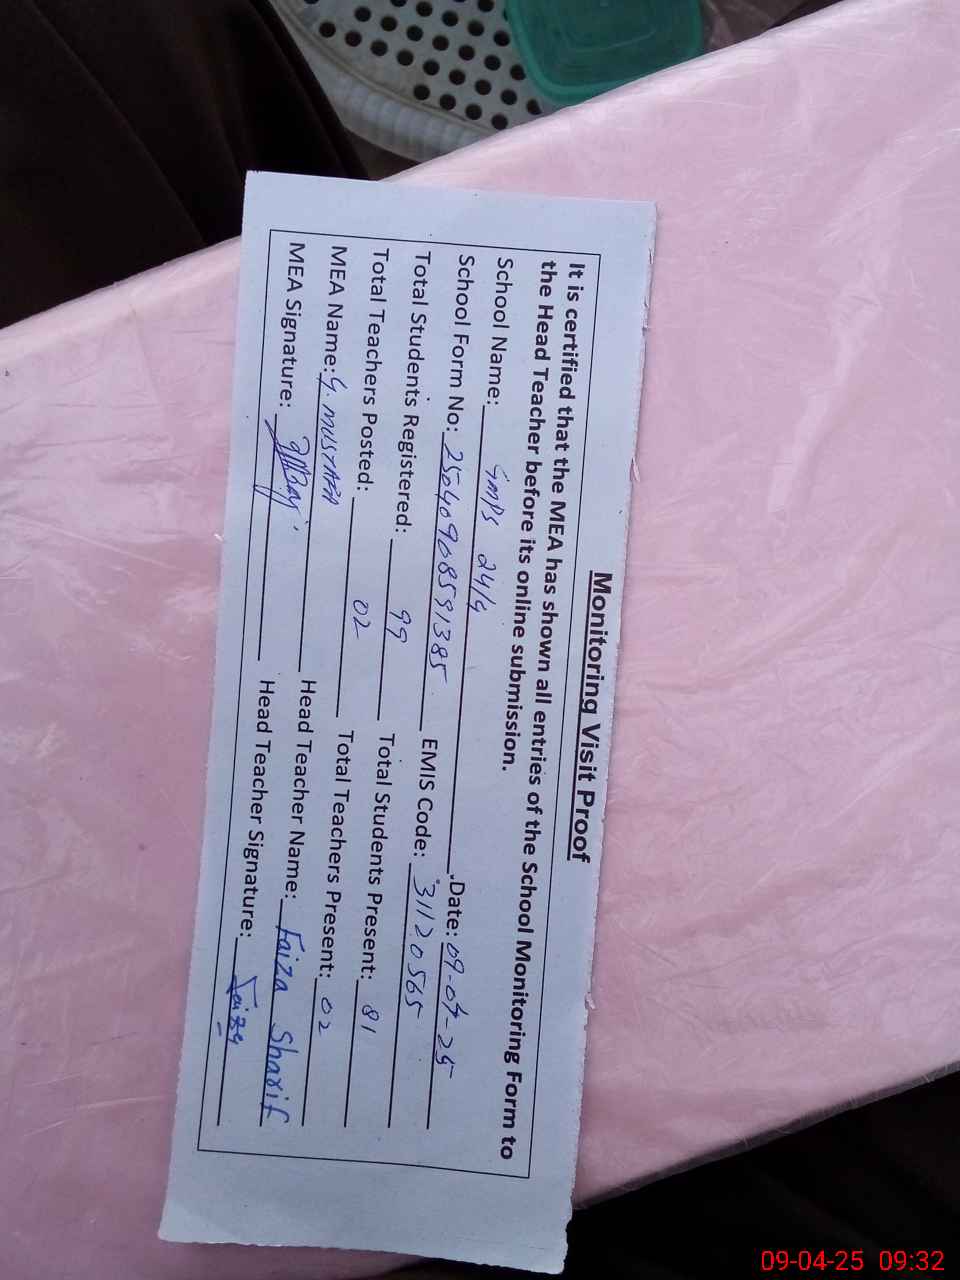 Monitoring Visit Proof
It is certified that the MEA has shown all entries of the School Monitoring Form to
the Head Teacher before its online submission.
School Name: GMPS 24/G .Date: 09-04-25
School Form No: 25040908591385 EMIS Code: 31120565
Total Students Registered: 99 Total Students Present: 81
Total Teachers Posted: 02 Total Teachers Present: 02
MEA Name: G. MUSTAFA Head Teacher Name: Faiza Sharif
MEA Signature: Head Teacher Signature: Faiza
09-04-25 09:32